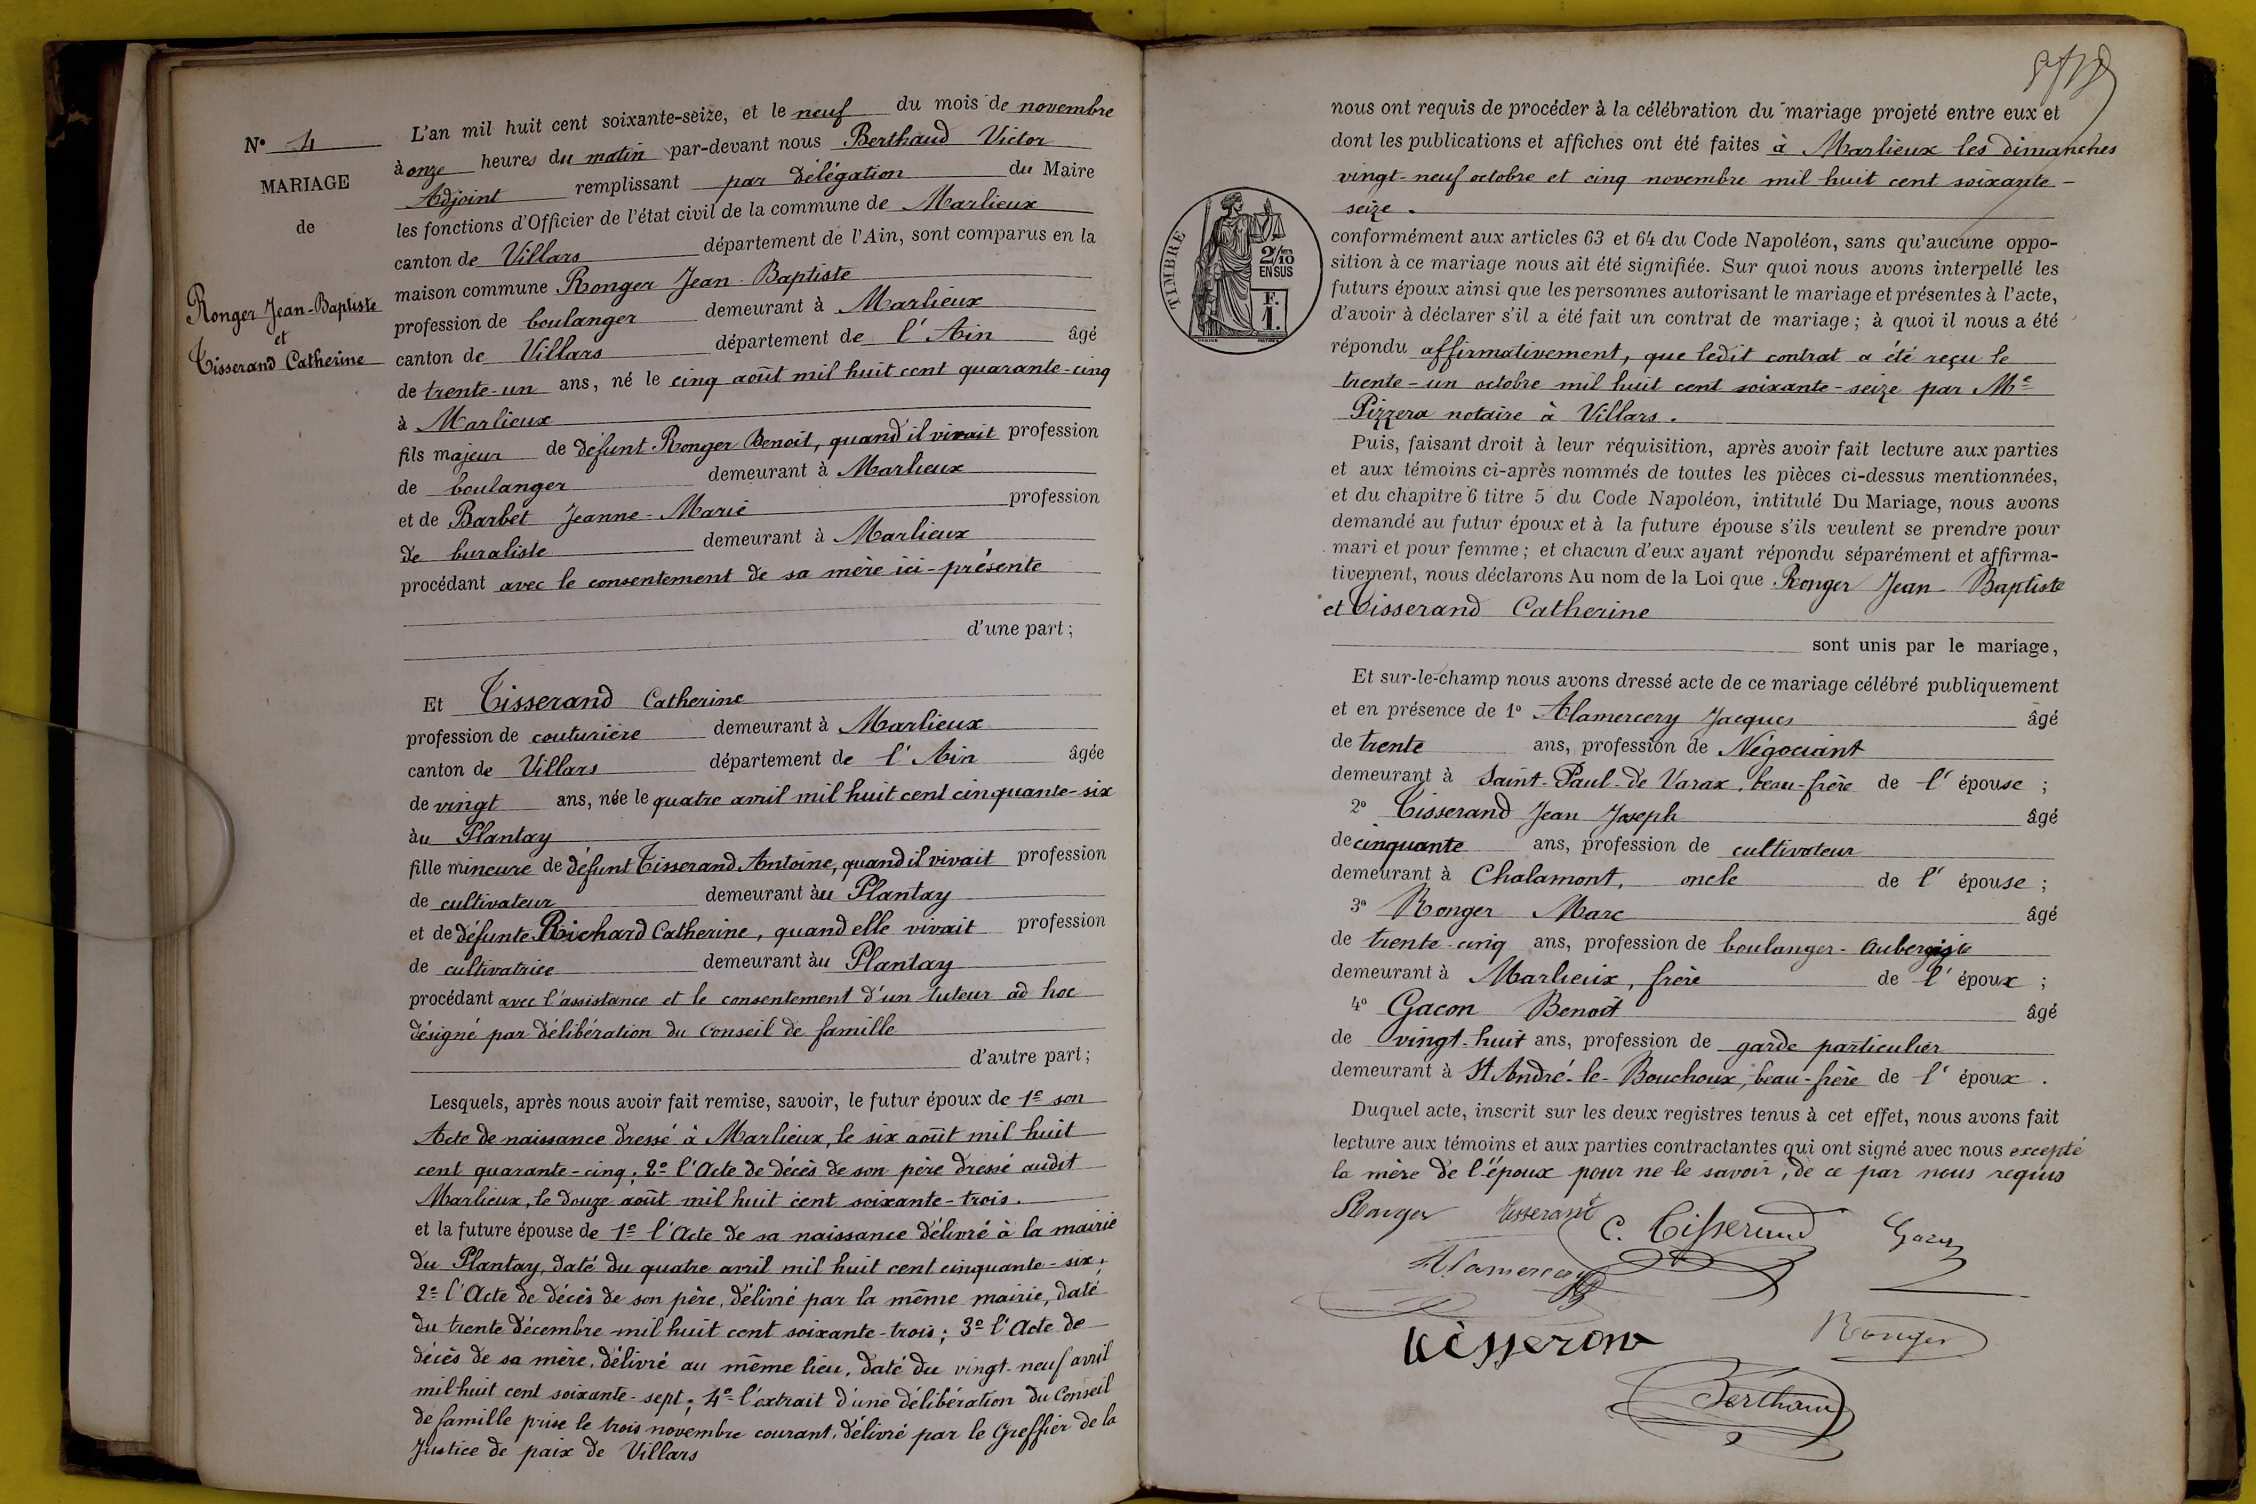 N° 4
MARIAGE
de
Ronger Jean-Baptiste
et
Tisserand Catherine
L'an mil huit cent soixante-seize, et le neuf du mois de novembre
à onze heures du matin par-devant nous Berthaud Victor
Adjoint remplissant par délégation du Maire
les fonctions d'Officier de l'état civil de la commune de Marlieux
canton de Villars département de l'Ain, sont comparus en la
maison commune Ronger Jean-Baptiste
profession de boulanger demeurant à Marlieux
canton de Villars département de l'Ain âgé
de trente-un ans, né le cinq août mil huit cent quarante-cinq
à Marlieux
fils majeur de défunt Ronger Benoit, quand il vivait profession
de boulanger demeurant à Marlieux
et de Barbet Jeanne-Marie profession
de buraliste demeurant à Marlieux
procédant avec le consentement de sa mère ici-présente
d'une part;
Et Tisserand Catherine
profession de couturière demeurant à Marlieux
canton de Villars département de l'Ain âgée
de vingt ans, née le quatre avril mil huit cent cinquante-six
àu Plantay
fille mineure de défunt Tisserand Antoine, quand il vivait profession
de cultivateur demeurant àu Plantay
et de défunte Richard Catherine, quand elle vivait profession
de cultivatrice demeurant àu Plantay
procédant avec l'assistance et le consentement d'un tuteur ad hoc
désigné par délibération du Conseil de famille
d'autre part;
Lesquels, après nous avoir fait remise, savoir, le futur époux de 1º son
Acte de naissance dressé à Marlieux, le six août mil huit
cent quarante-cinq; 2º l'Acte de décès de son père dressé audit
Marlieux, le douze août mil huit cent soixante-trois.
et la future épouse de 1º l'Acte de sa naissance délivré à la mairie
du Plantay, daté du quatre avril mil huit cent cinquante-six;
2º l'Acte de décès de son père, délivré par la même mairie, daté
du trente décembre mil huit cent soixante-trois; 3º l'Acte de
décès de sa mère, délivré au même lieu, daté du vingt-neuf avril
mil huit cent soixante-sept; 4º l'extrait d'une délibération du Conseil
de famille prise le trois novembre courant, délivré par le Greffier de la
Justice de paix de Villars
nous ont requis de procéder à la célébration du mariage projeté entre eux et
dont les publications et affiches ont été faites à Marlieux les dimanches
vingt-neuf octobre et cinq novembre mil huit cent soixante-
seize.
TIMBRE
2/10
EN SUS
F.
1.
conformément aux articles 63 et 64 du Code Napoléon, sans qu'aucune oppo-
sition à ce mariage nous ait été signifiée. Sur quoi nous avons interpellé les
futurs époux ainsi que les personnes autorisant le mariage et présentes à l'acte,
d'avoir à déclarer s'il a été fait un contrat de mariage; à quoi il nous a été
répondu affirmativement, que ledit contrat a été reçu le
trente-un octobre mil huit cent soixante-seize par Me
Pizzera notaire à Villars.
Puis, faisant droit à leur réquisition, après avoir fait lecture aux parties
et aux témoins ci-après nommés de toutes les pièces ci-dessus mentionnées,
et du chapitre 6 titre 5 du Code Napoléon, intitulé Du Mariage, nous avons
demandé au futur époux et à la future épouse s'ils veulent se prendre pour
mari et pour femme; et chacun d'eux ayant répondu séparément et affirma-
tivement, nous déclarons Au nom de la Loi que Ronger Jean-Baptiste
et Tisserand Catherine
sont unis par le mariage,
Et sur-le-champ nous avons dressé acte de ce mariage célébré publiquement
et en présence de 1º Alamercery Jacques âgé
de trente ans, profession de Négociant
demeurant à Saint-Paul-de Varax, beau-frère de l'épouse;
2º Tisserand Jean Joseph âgé
de cinquante ans, profession de cultivateur
demeurant à Chalamont, oncle de l'épouse;
3º Ronger Marc âgé
de trente-cinq ans, profession de boulanger-Aubergiste
demeurant à Marlieux, frère de l'époux;
4º Gacon Benoît âgé
de vingt-huit ans, profession de garde particulier
demeurant à St André-le-Bouchoux, beau-frère de l'époux.
Duquel acte, inscrit sur les deux registres tenus à cet effet, nous avons fait
lecture aux témoins et aux parties contractantes qui ont signé avec nous excepté
la mère de l'époux pour ne le savoir, de ce par nous requis
Ronger Tisserand C. Tisserand Gacon
Alamercery
tisseron Ronger
Berthaud